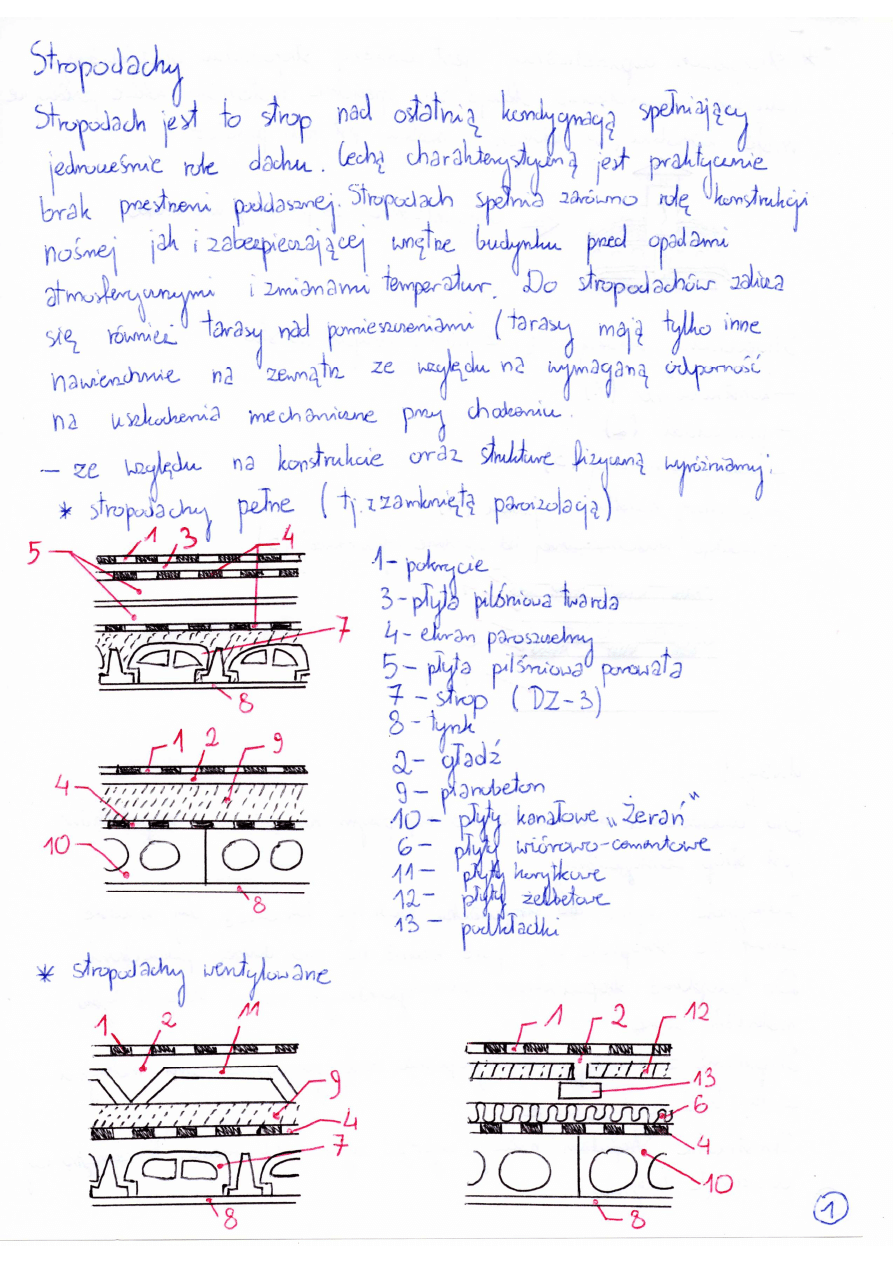 Stropodachy
Stropodach jest to strop nad ostatnią kondygnacją spełniający
jednocześnie role dachu. Cechą charakterystyczną jest praktycznie
brak przestrzeni poddasznej. Stropodach spełnia zarówno rolę konstrukcji
nośnej jak i zabezpieczającej wnętrze budynku przed opadami
atmosferycznymi i zmianami temperatur. Do stropodachów zalicza
się również tarasy nad pomieszczeniami (tarasy mają tylko inne
nawierzchnie na zewnątrz ze względu na wymaganą odporność
na uszkodzenia mechaniczne przy chodzeniu.
– ze względu na konstrukcie oraz strukture fizyczną wyróżniamy:
* stropodachy pełne (tj. z zamkniętą paroizolacją)
5 1 3 4
7
8
1 – pokrycie
3 – płyta pilśniowa twarda
4 – ekran paroszczelny
5 – płyta pilśniowa porowata
7 – strop (DZ-3)
8 – tynk
2 – gładź
9 – pianobeton
10 – płyty kanałowe „Żerań"
6 – płyty wiórowo-cementowe
11 – płyty korytkowe
12 – płyty żelbetowe
13 – podkładki
1 2 9
4
10
8
* stropodachy wentylowane
1 2 11
9
4
7
8
1 2 12
13
6
4
10
8
1